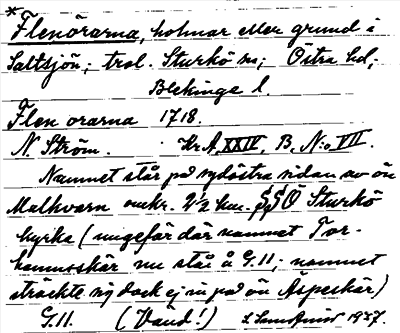 *Flenörarna, holmar eller grund i
Saltsjön; trol. Sturkö sn; Östra hd;
Blekinge l.
Flen örarna 1718.
N. Ström. Kr.A, XXIV, B, N:o VII.
Namnet står på sydöstra sidan av ön
Malkvarn omkr. 2 1/2 km. SSÖ Sturkö
kyrka (ungefär där namnet Tor-
hamnskär nu står å G.11; namnet
sträckte sig dock ej in på ön Äspeskär)
G.11. (Vänd!) 1937.